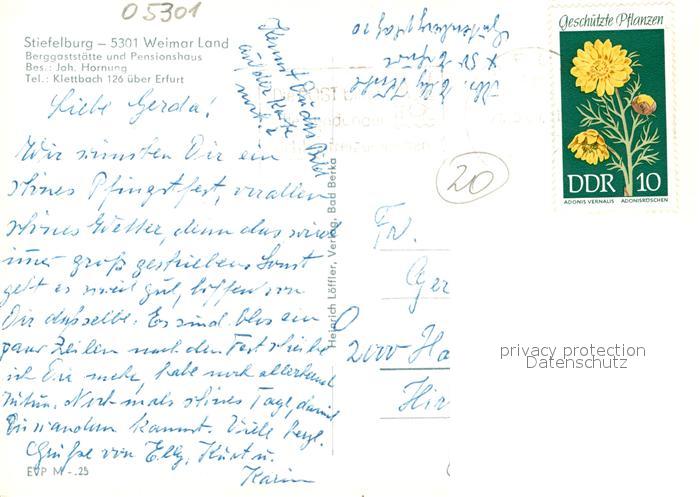 05301
Stiefelburg – 5301 Weimar Land
Berggaststätte und Pensionshaus
Bes.: Joh. Hornung
Tel.: Klettbach 126 über Erfurt
Liebe Gerda!
Wir wünschen Dir ein
schönes Pfingstfest, vor allen
schönes Wetter, denn das wird
immer groß geschrieben. Sonst
geht es uns gut, hoffen von
Dir dasselbe. Es sind blos ein
paar Zeilen nach dem Fest schreibe
ich Dir mehr, habe noch allerhand
zutun. Nochmals schöne Tage, damit
kommst. Viele herzl.
Grüße von Elly, Kurt u.
Karin
EVP M -.25
Kennst Du das Bild
auf der Karte
noch?
Heinrich Löffler, Verlag, Bad Berka
Elly
Erfurt
20
Geschützte Pflanzen
DDR 10
ADONIS VERNALIS ADONISRÖSCHEN
Fr.
Ger
2000 Ha
Hir
privacy protection
Datenschutz